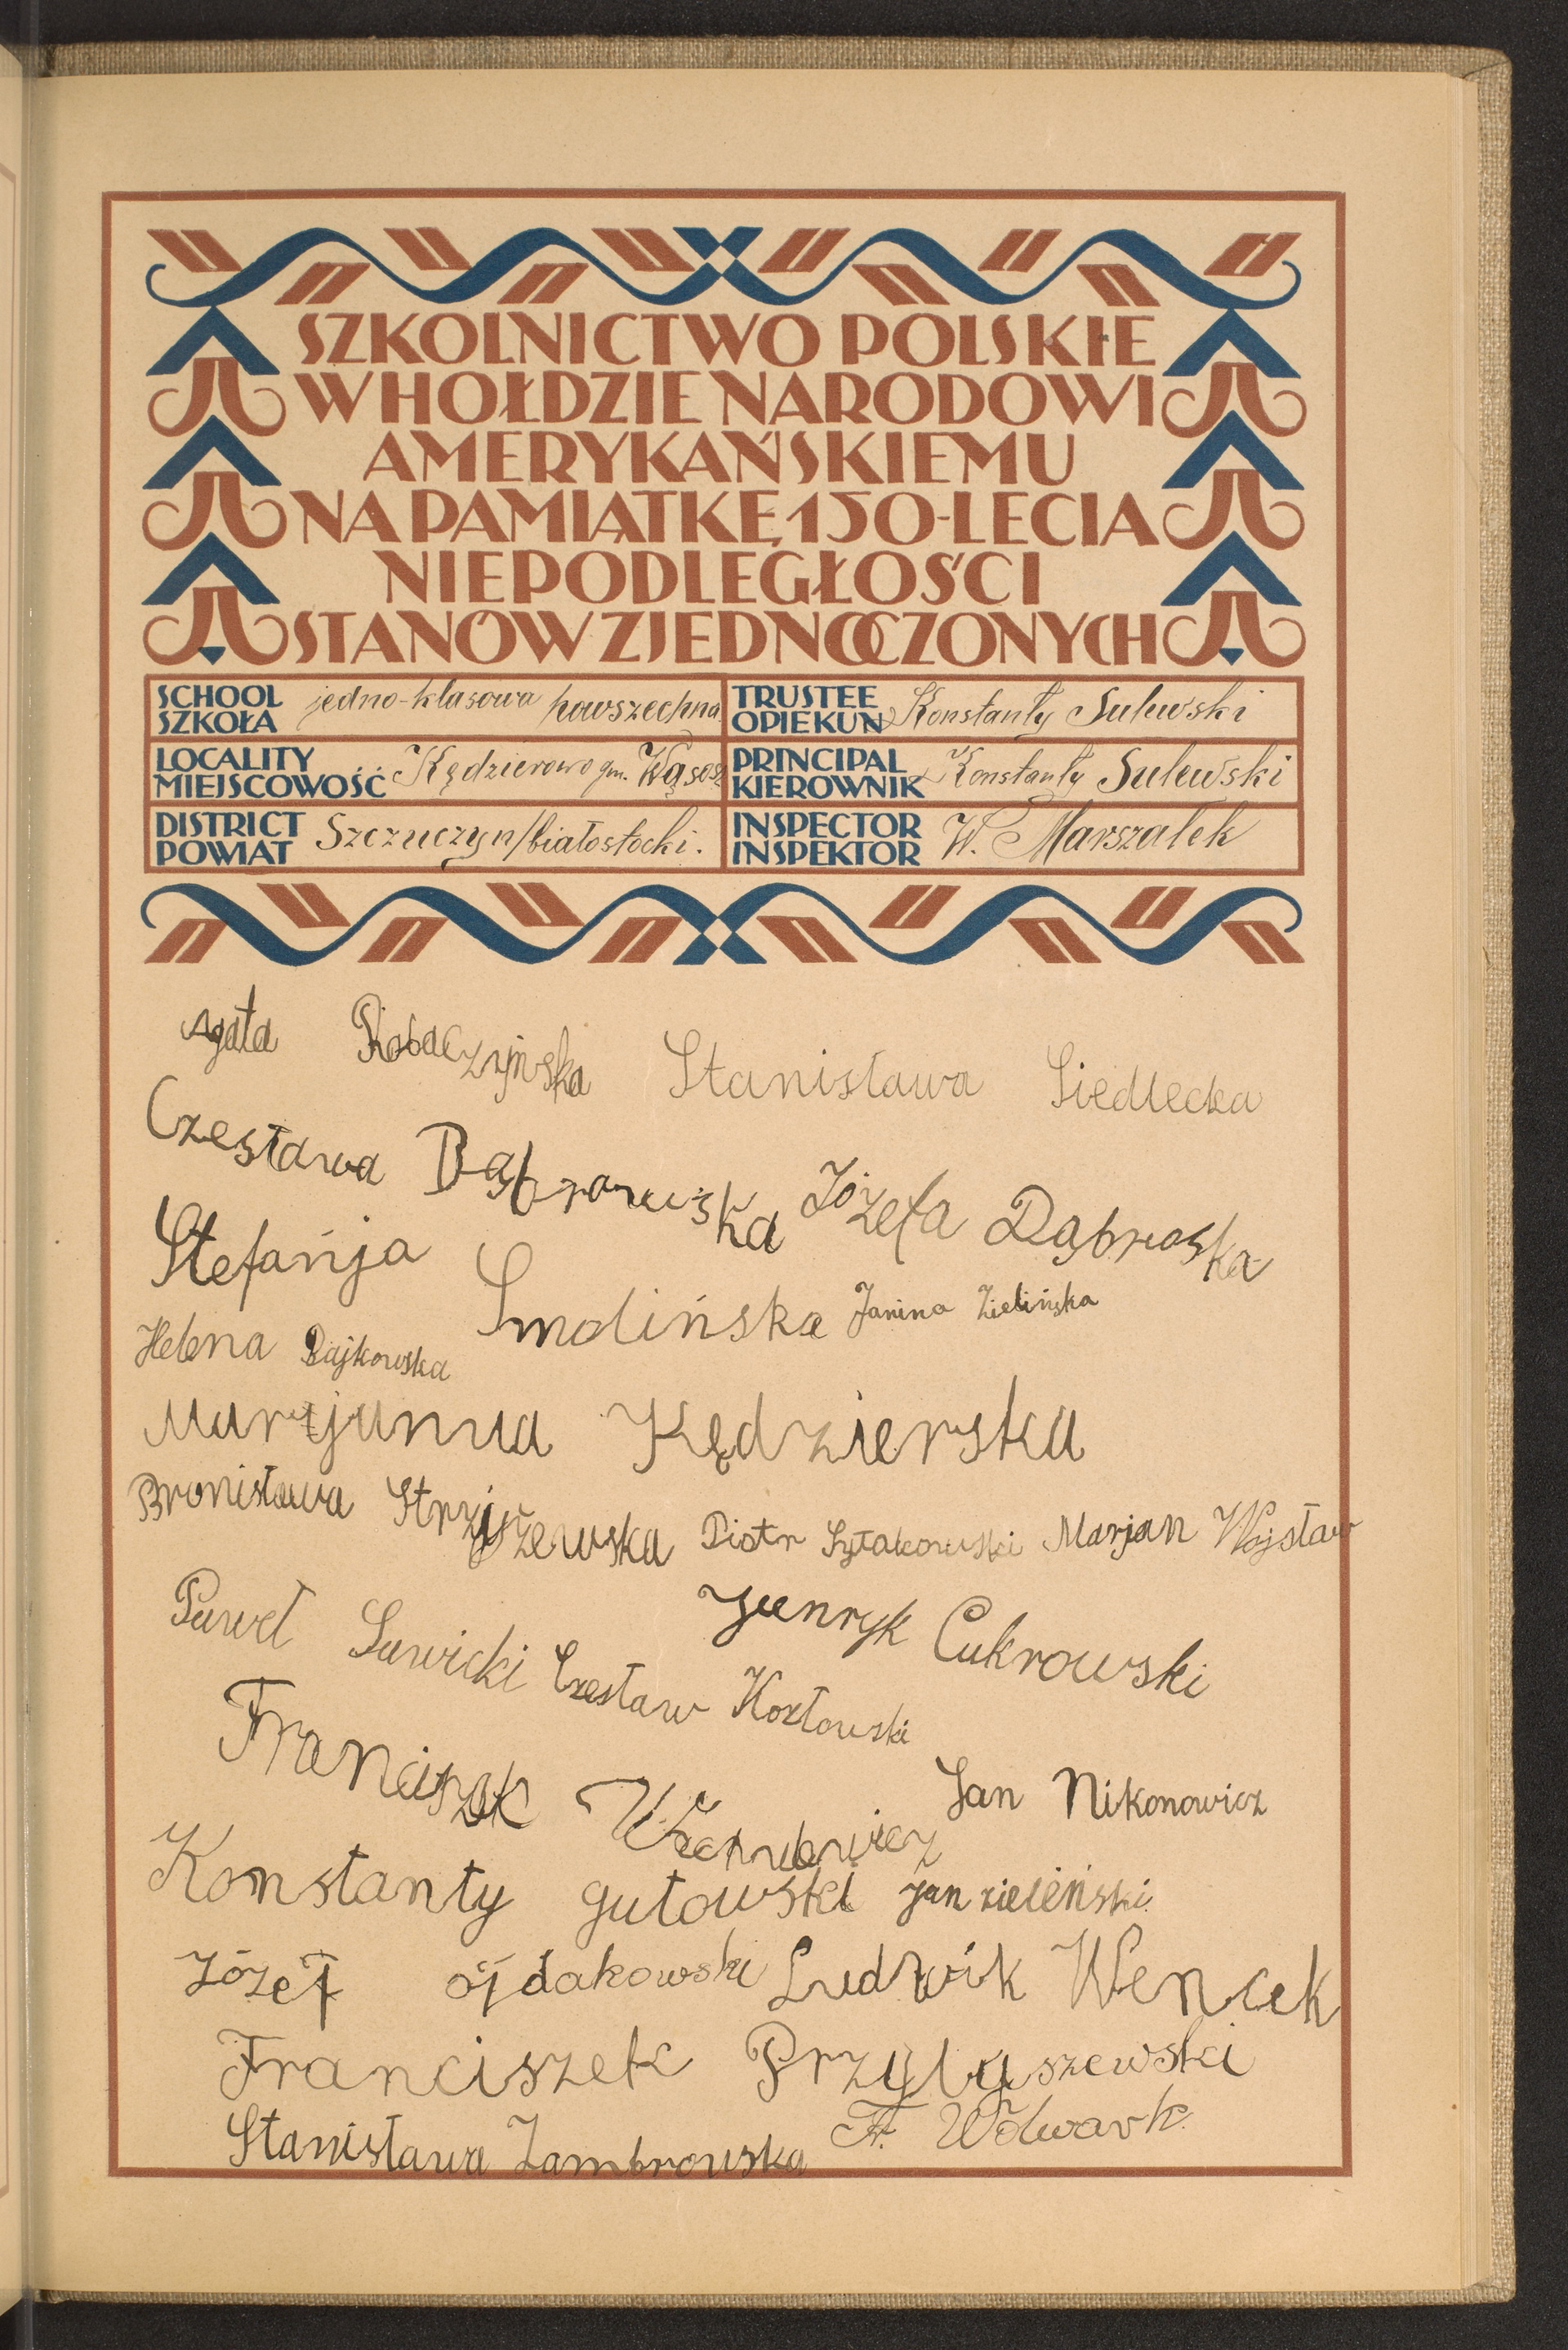 SZKOLNICTWO POLSKIE
W HOŁDZIE NARODOWI
AMERYKAŃSKIEMU
NA PAMIĄTKĘ 150-LECIA
NIEPODLEGŁOŚCI
STANÓW ZJEDNOCZONYCH
SCHOOL SZKOŁA jedno-klasowa powszechna
TRUSTEE OPIEKUN Konstanty Sulewski
LOCALITY MIEJSCOWOŚĆ Kędzierowo gm. Wąsosz
PRINCIPAL KIEROWNIK Konstanty Sulewski
DISTRICT POWIAT Szczuczyn/białostocki.
INSPECTOR INSPEKTOR W. Marszałek
Agata Stanisława Siedlecka
Czesława Dąbrowska Józefa Dąbrowska
Stefańja Smolińska Janina Zielińska
Helena Bajkowska
Marjanna Kędzierska
Bronisława Strzyżewska Piotr Marjan Wojsław
Paweł Sawicki Henryk Cukrowski
Czesław Kozłowski
Franciszek Jan Nikonowicz
Konstanty gutowski Jan zieleński
Józef ojdakowski Ludwik Wencek
Franciszek
Stanisława Zambrowska Fr. Wolwark.